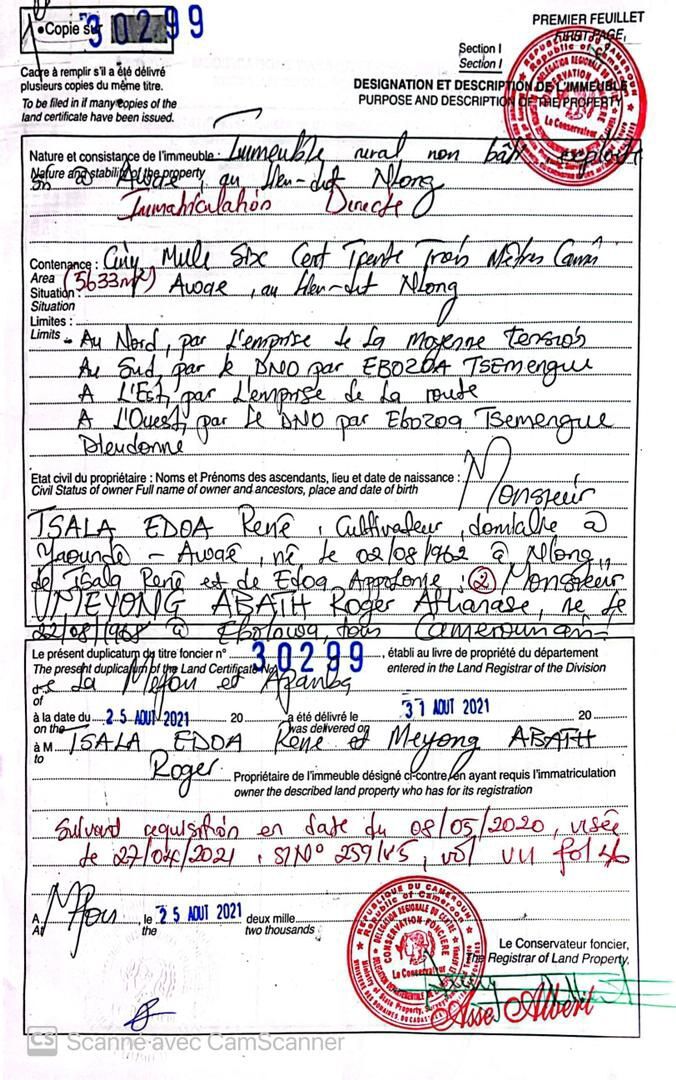 Copie sur 30299
PREMIER FEUILLET
FIRST PAGE,
Section I
Section I
Cadre à remplir s'il a été délivré
plusieurs copies du même titre.
To be filed in if many copies of the
land certificate have been issued.
DESIGNATION ET DESCRIPTION DE L'IMMEUBLE
PURPOSE AND DESCRIPTION OF THE PROPERTY
Nature et consistance de l'immeuble : Immeuble rural non bâti exploité
Nature and stability of the property
à Awae, au lieu-dit Nlong
Immatriculation Directe
Contenance : Cinq Mille Six Cent Trente Trois Mètres
Area (5633m²)
Situation : Awae, au lieu-dit Nlong
Situation
Limites :
Limits - Au Nord, par l'emprise de la moyenne tension
Au Sud, par le DNO par EBOZOA TSEMENGUE
A l'Est, par l'emprise de la route
A l'Ouest, par le DNO par Ebozoa Tsemengue
Dieudonne
Etat civil du propriétaire : Noms et Prénoms des ascendants, lieu et date de naissance :
Civil Status of owner Full name of owner and ancestors, place and date of birth
Monsieur
TSALA EDOA René, Cultivateur, domicilié à
Yaoundé - Awaé, né le 02/08/1962 à Nlong,
de Tsala René et de Edoa Appolonie ; ② Monsieur
UMEYONG ABATH Roger Athanase, né le
22/08/1968 à Ebolowa, tous Camerounais -
Le présent duplicatum du titre foncier n° 30299, établi au livre de propriété du département
The present duplicatum of the Land Certificate No entered in the Land Registrar of the Division
de La Mefou et Afamba
of
à la date du 25 AOUT 2021 20 a été délivré le 31 AOUT 2021 20
on the was delivered on
à M TSALA EDOA René et Meyong ABATH
to
Roger Propriétaire de l'immeuble désigné ci-contre, en ayant requis l'immatriculation
owner the described land property who has for its registration
Suivant réquisition en date du 08/05/2020, visée
le 27/04/2021, S/N° 259/45, vol VII fol 46
A Mfou, le 25 AOUT 2021 deux mille
At the two thousands
Le Conservateur foncier,
The Registrar of Land Property,
REPUBLIQUE DU CAMEROUN
Republic of Cameroon
DELEGATION REGIONALE DU CENTRE
CONSERVATION FONCIERE
Le Conservateur
Asse Albert
CS Scanné avec CamScanner